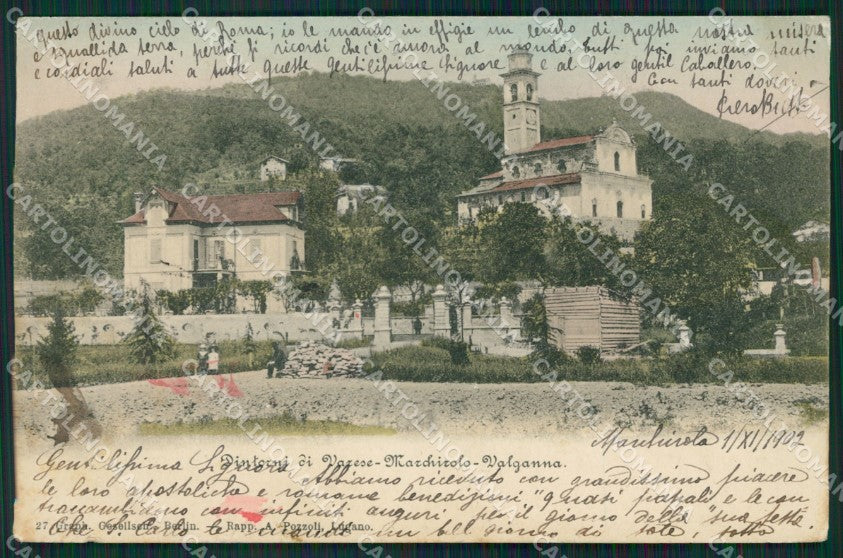 questo divino cielo di Roma; io le mando in effigie un lembo di questa nostra misera
e squallida terra, perchè si ricordi che c'è ancora al mondo. Tutti poi inviamo tanti
e cordiali saluti a tutte queste Gentilissime Signore e al loro gentil Cavaliero.
Con tanti doveri
Marchirolo 1/XI/1902
Dintorni di Varese-Marchirolo-Valganna.
Gentilissima Signora
Abbiamo ricevuto con grandissimo piacere
le loro apostoliche e romane benedizioni "quasi papali" e le con
traccambiamo con infiniti auguri per il giorno della "sua festa.
27 Graph. Gesellsch., Berlin. - Rapp. A. Pozzoli, Lugano.
Che S. Carlo le un bel giorno di sole, sotto
CARTOLINOMANIA.COM